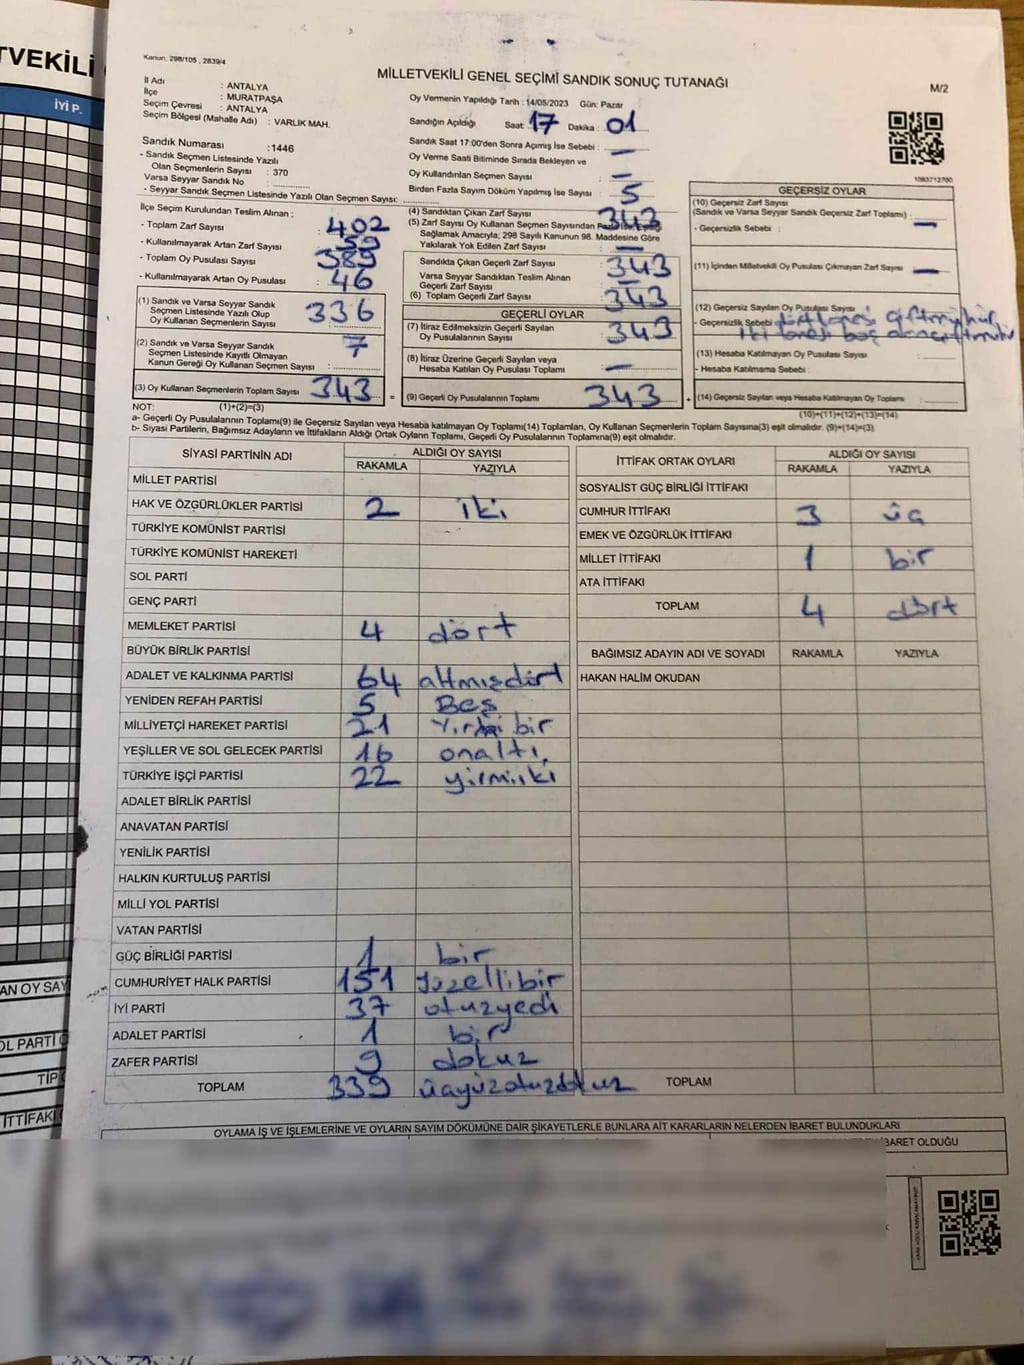 TVEKİLİ
İYİ P.
Kanun: 298/105 , 2839/4
MİLLETVEKİLİ GENEL SEÇİMİ SANDIK SONUÇ TUTANAĞI
M/2
İl Adı : ANTALYA
İlçe : MURATPAŞA
Seçim Çevresi : ANTALYA
Seçim Bölgesi (Mahalle Adı) : VARLIK MAH.
Sandık Numarası :1446
- Sandık Seçmen Listesinde Yazılı
Olan Seçmenlerin Sayısı : 370
Varsa Seyyar Sandık No
- Seyyar Sandık Seçmen Listesinde Yazılı Olan Seçmen Sayısı:
Oy Vermenin Yapıldığı Tarih : 14/05/2023 Gün: Pazar
Sandığın Açıldığı Saat: 17 Dakika : 01
Sandık Saat 17:00'den Sonra Açılmış İse Sebebi :
Oy Verme Saati Bitiminde Sırada Bekleyen ve
Oy Kullandırılan Seçmen Sayısı : —
Birden Fazla Sayım Döküm Yapılmış İse Sayısı : 5
1083712700
İlçe Seçim Kurulundan Teslim Alınan ;
- Toplam Zarf Sayısı : 402
- Kullanılmayarak Artan Zarf Sayısı : 59
- Toplam Oy Pusulası Sayısı : 389
- Kullanılmayarak Artan Oy Pusulası : 46
(1) Sandık ve Varsa Seyyar Sandık
Seçmen Listesinde Yazılı Olup
Oy Kullanan Seçmenlerin Sayısı : 336
(2) Sandık ve Varsa Seyyar Sandık
Seçmen Listesinde Kayıtlı Olmayan
Kanun Gereği Oy Kullanan Seçmen Sayısı : 7
(3) Oy Kullanan Seçmenlerin Toplam Sayısı 343
(4) Sandıktan Çıkan Zarf Sayısı : 343
(5) Zarf Sayısı Oy Kullanan Seçmen Sayısından Fazla İse, Eşitliği
Sağlamak Amacıyla; 298 Sayılı Kanunun 98. Maddesine Göre
Yakılarak Yok Edilen Zarf Sayısı : —
Sandıkta Çıkan Geçerli Zarf Sayısı : 343
Varsa Seyyar Sandıktan Teslim Alınan
Geçerli Zarf Sayısı : —
(6) Toplam Geçerli Zarf Sayısı : 343
GEÇERLİ OYLAR
(7) İtiraz Edilmeksizin Geçerli Sayılan
Oy Pusulalarının Sayısı : 343
(8) İtiraz Üzerine Geçerli Sayılan veya
Hesaba Katılan Oy Pusulası Toplamı : —
= (9) Geçerli Oy Pusulalarının Toplamı 343
GEÇERSİZ OYLAR
(10) Geçersiz Zarf Sayısı
(Sandık ve Varsa Seyyar Sandık Geçersiz Zarf Toplamı) :
- Geçersizlik Sebebi : —
(11) İçinden Milletvekili Oy Pusulası Çıkmayan Zarf Sayısı : —
(12) Geçersiz Sayılan Oy Pusulası Sayısı
- Geçersizlik Sebebi
(13) Hesaba Katılmayan Oy Pusulası Sayısı
- Hesaba Katılmama Sebebi :
+ (14) Geçersiz Sayılan veya Hesaba Katılmayan Oy Toplamı :
NOT: (1)+(2)=(3)
(10)+(11)+(12)+(13)=(14)
a- Geçerli Oy Pusulalarının Toplamı(9) ile Geçersiz Sayılan veya Hesaba katılmayan Oy Toplamı(14) Toplamları, Oy Kullanan Seçmenlerin Toplam Sayısına(3) eşit olmalıdır. (9)+(14)=(3)
b- Siyasi Partilerin, Bağımsız Adayların ve İttifakların Aldığı Ortak Oyların Toplamı, Geçerli Oy Pusulalarının Toplamına(9) eşit olmalıdır.
SİYASİ PARTİNİN ADI ALDIĞI OY SAYISI
RAKAMLA YAZIYLA
MİLLET PARTİSİ
HAK VE ÖZGÜRLÜKLER PARTİSİ 2 iki
TÜRKİYE KOMÜNİST PARTİSİ
TÜRKİYE KOMÜNİST HAREKETİ
SOL PARTİ
GENÇ PARTİ
MEMLEKET PARTİSİ 4 dört
BÜYÜK BİRLİK PARTİSİ
ADALET VE KALKINMA PARTİSİ 64 altmışdört
YENİDEN REFAH PARTİSİ 5 Beş
MİLLİYETÇİ HAREKET PARTİSİ 21 Yirmi bir
YEŞİLLER VE SOL GELECEK PARTİSİ 16 onaltı
TÜRKİYE İŞÇİ PARTİSİ 22 yirmiiki
ADALET BİRLİK PARTİSİ
ANAVATAN PARTİSİ
YENİLİK PARTİSİ
HALKIN KURTULUŞ PARTİSİ
MİLLİ YOL PARTİSİ
VATAN PARTİSİ
GÜÇ BİRLİĞİ PARTİSİ 1 bir
CUMHURİYET HALK PARTİSİ 151 yüzellibir
İYİ PARTİ 37 otuzyedi
ADALET PARTİSİ 1 bir
ZAFER PARTİSİ 9 dokuz
TOPLAM 339 üçyüzotuzdokuz
İTTİFAK ORTAK OYLARI ALDIĞI OY SAYISI
RAKAMLA YAZIYLA
SOSYALİST GÜÇ BİRLİĞİ İTTİFAKI
CUMHUR İTTİFAKI 3 üç
EMEK VE ÖZGÜRLÜK İTTİFAKI
MİLLET İTTİFAKI 1 bir
ATA İTTİFAKI
TOPLAM 4 dört
BAĞIMSIZ ADAYIN ADI VE SOYADI RAKAMLA YAZIYLA
HAKAN HALİM OKUDAN
TOPLAM
OYLAMA İŞ VE İŞLEMLERİNE VE OYLARIN SAYIM DÖKÜMÜNE DAİR ŞİKAYETLERLE BUNLARA AİT KARARLARIN NELERDEN İBARET BULUNDUKLARI
BARET OLDUĞU
AN OY SAY
OL PARTİ
TİP
İTTİFAKI